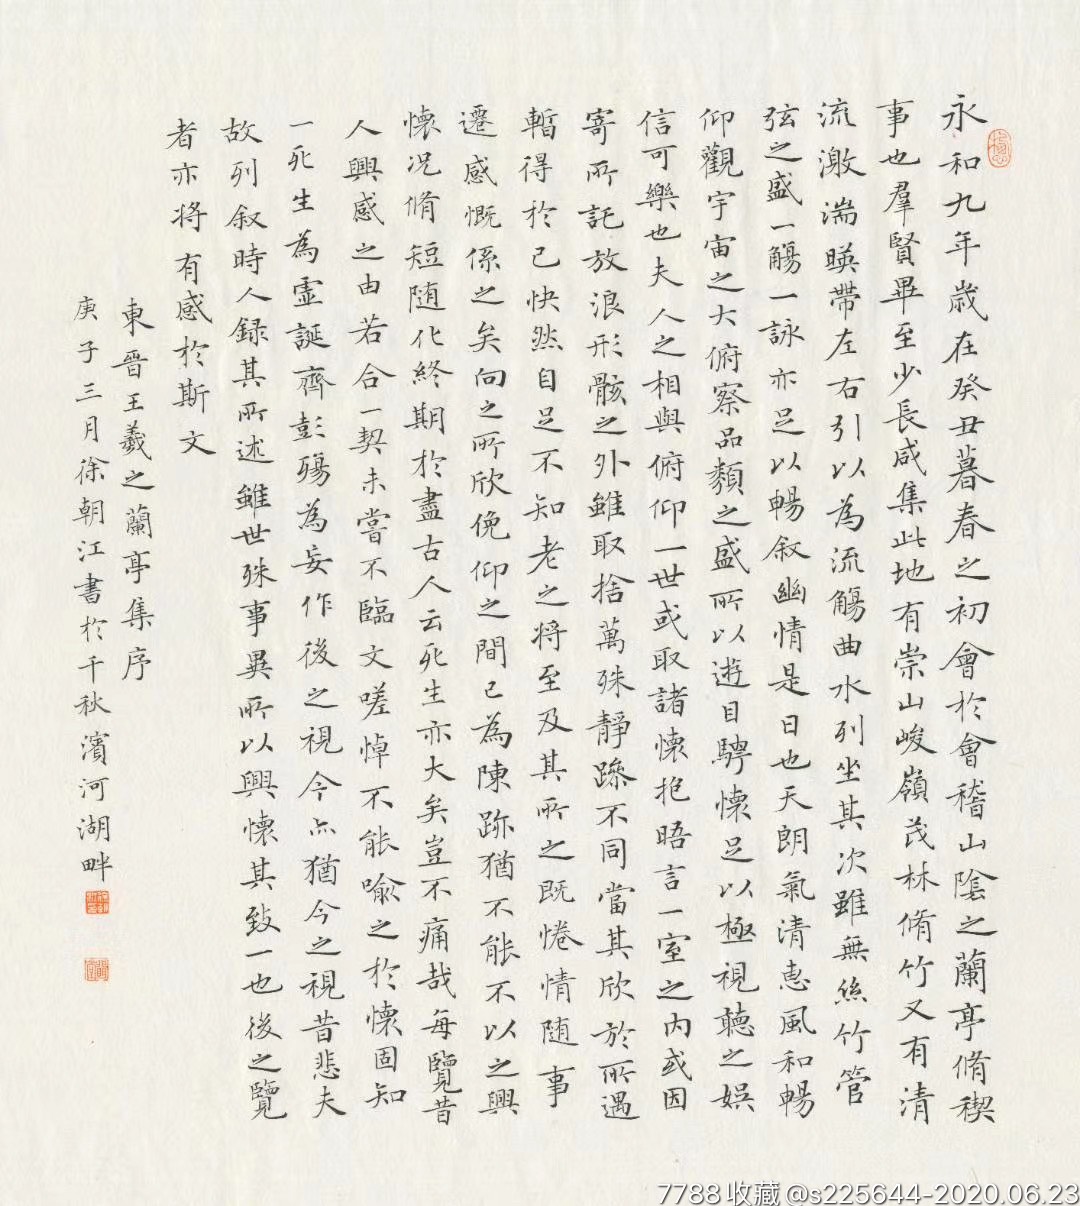 永和九年歲在癸丑暮春之初會於會稽山陰之蘭亭脩稧
事也羣賢畢至少長咸集此地有崇山峻嶺茂林脩竹又有清
流激湍暎帶左右引以為流觴曲水列坐其次雖無絲竹管
弦之盛一觴一詠亦足以暢叙幽情是日也天朗氣清惠風和暢
仰觀宇宙之大俯察品類之盛所以遊目騁懷足以極視聽之娛
信可樂也夫人之相與俯仰一世或取諸懷抱晤言一室之內或因
寄所託放浪形骸之外雖取捨萬殊靜躁不同當其欣於所遇
暫得於己快然自足不知老之將至及其所之既惓情隨事
遷感慨係之矣向之所欣俛仰之間已為陳跡猶不能不以之興
懷況脩短隨化終期於盡古人云死生亦大矣豈不痛哉每覽昔
人興感之由若合一契未嘗不臨文嗟悼不能喻之於懷固知
一死生為虛誕齊彭殤為妄作後之視今亦猶今之視昔悲夫
故列叙時人錄其所述雖世殊事異所以興懷其致一也後之覽
者亦將有感於斯文
東晉王羲之蘭亭集序
庚子三月徐朝江書於千秋濱河湖畔
7788收藏@s225644-2020.06.23